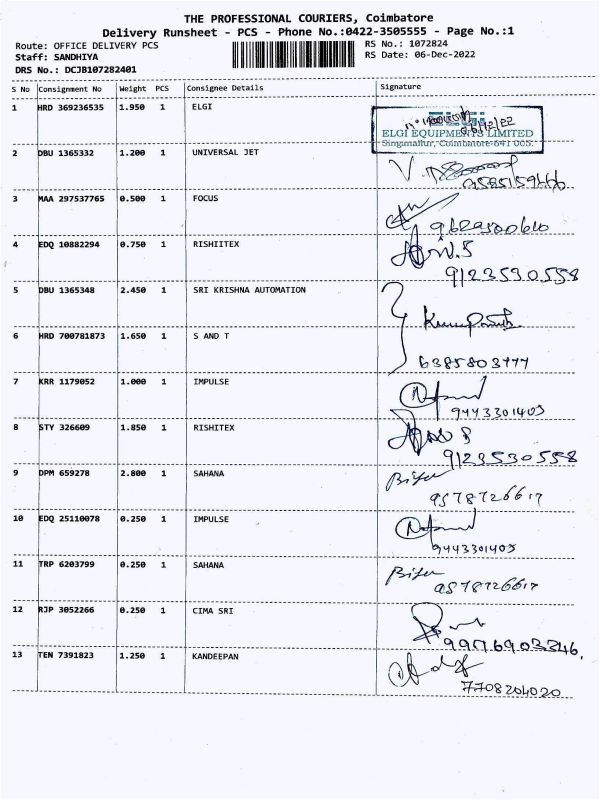 THE PROFESSIONAL COURIERS, Coimbatore
Delivery Runsheet - PCS - Phone No.:0422-3505555 - Page No.:1
Route: OFFICE DELIVERY PCS
RS No.: 1072824
Staff: SANDHIYA
RS Date: 06-Dec-2022
DRS No.: DCJB107282401
S No Consignment No Weight PCS Consignee Details Signature
1 HRD 369236535 1.950 1 ELGI
06/12/22
ELGI
ELGI EQUIPMENTS LIMITED
Singanallur, Coimbatore-641 005.
2 DBU 1365332 1.200 1 UNIVERSAL JET
3 MAA 297537765 0.500 1 FOCUS
4 EDQ 10882294 0.750 1 RISHIITEX
9123530558
5 DBU 1365348 2.450 1 SRI KRISHNA AUTOMATION
6 HRD 700781873 1.650 1 S AND T
6385803777
7 KRR 1179052 1.000 1 IMPULSE
9443301405
8 STY 326609 1.850 1 RISHITEX
9123530558
9 DPM 659278 2.800 1 SAHANA
9578726617
10 EDQ 25110078 0.250 1 IMPULSE
9443301405
11 TRP 6203799 0.250 1 SAHANA
9578726617
12 RJP 3052266 0.250 1 CIMA SRI
9976903346.
13 TEN 7391823 1.250 1 KANDEEPAN
7708204020